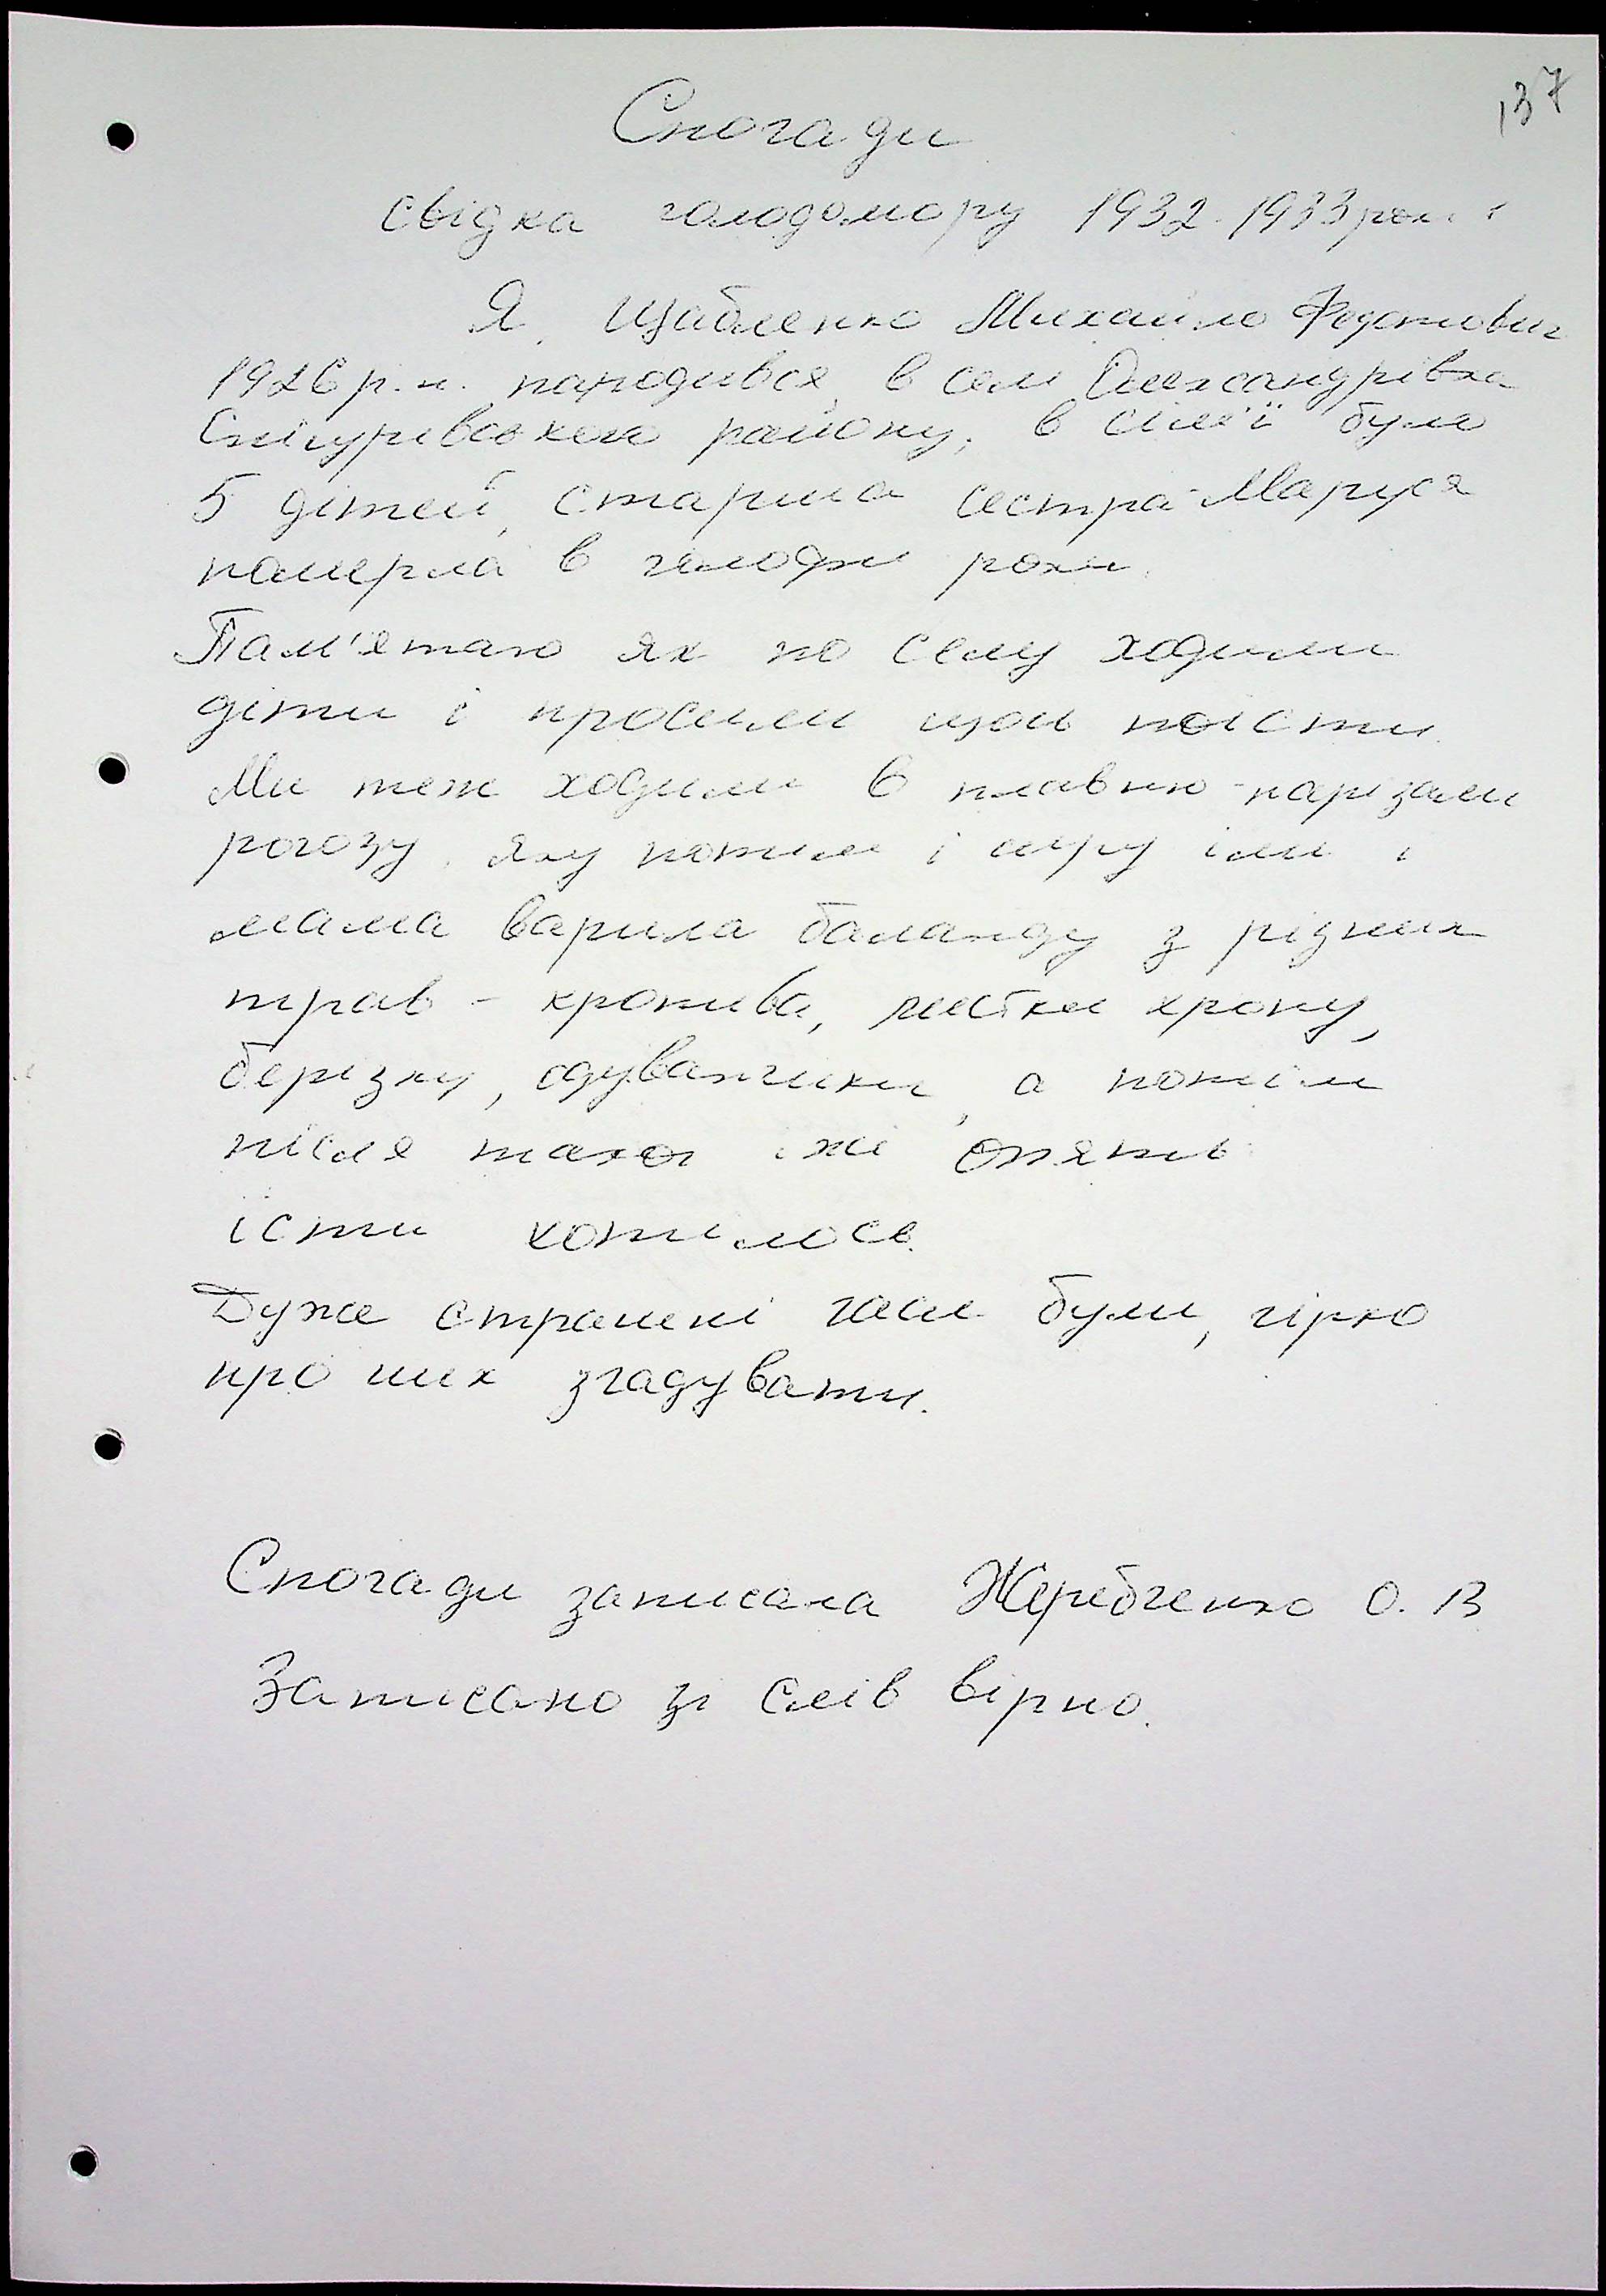 137
Спогади
свідка голодомору 1932-1933 років
Я, Щабленко Михайло Федотович
1926 р.н. народився в селі Олександрівка
Снігурівського району, в сім'ї було
5 дітей, старша сестра Маруся
померла в голодні роки.
Пам'ятаю як по селу ходили
діти і просили щоб поїсти.
Ми теж ходили в плавню - нарізали
рогозу, яку потім і сиру їли і
мама варила баланду з різних
трав - кропива, листки хрону,
берізку, одуванчики, а потім
після такої їжі опять
їсти хотілося.
Дуже страшні часи були, гірко
про них згадувати.
Спогади записала Жеребченко О. В
Записано зі слів вірно.